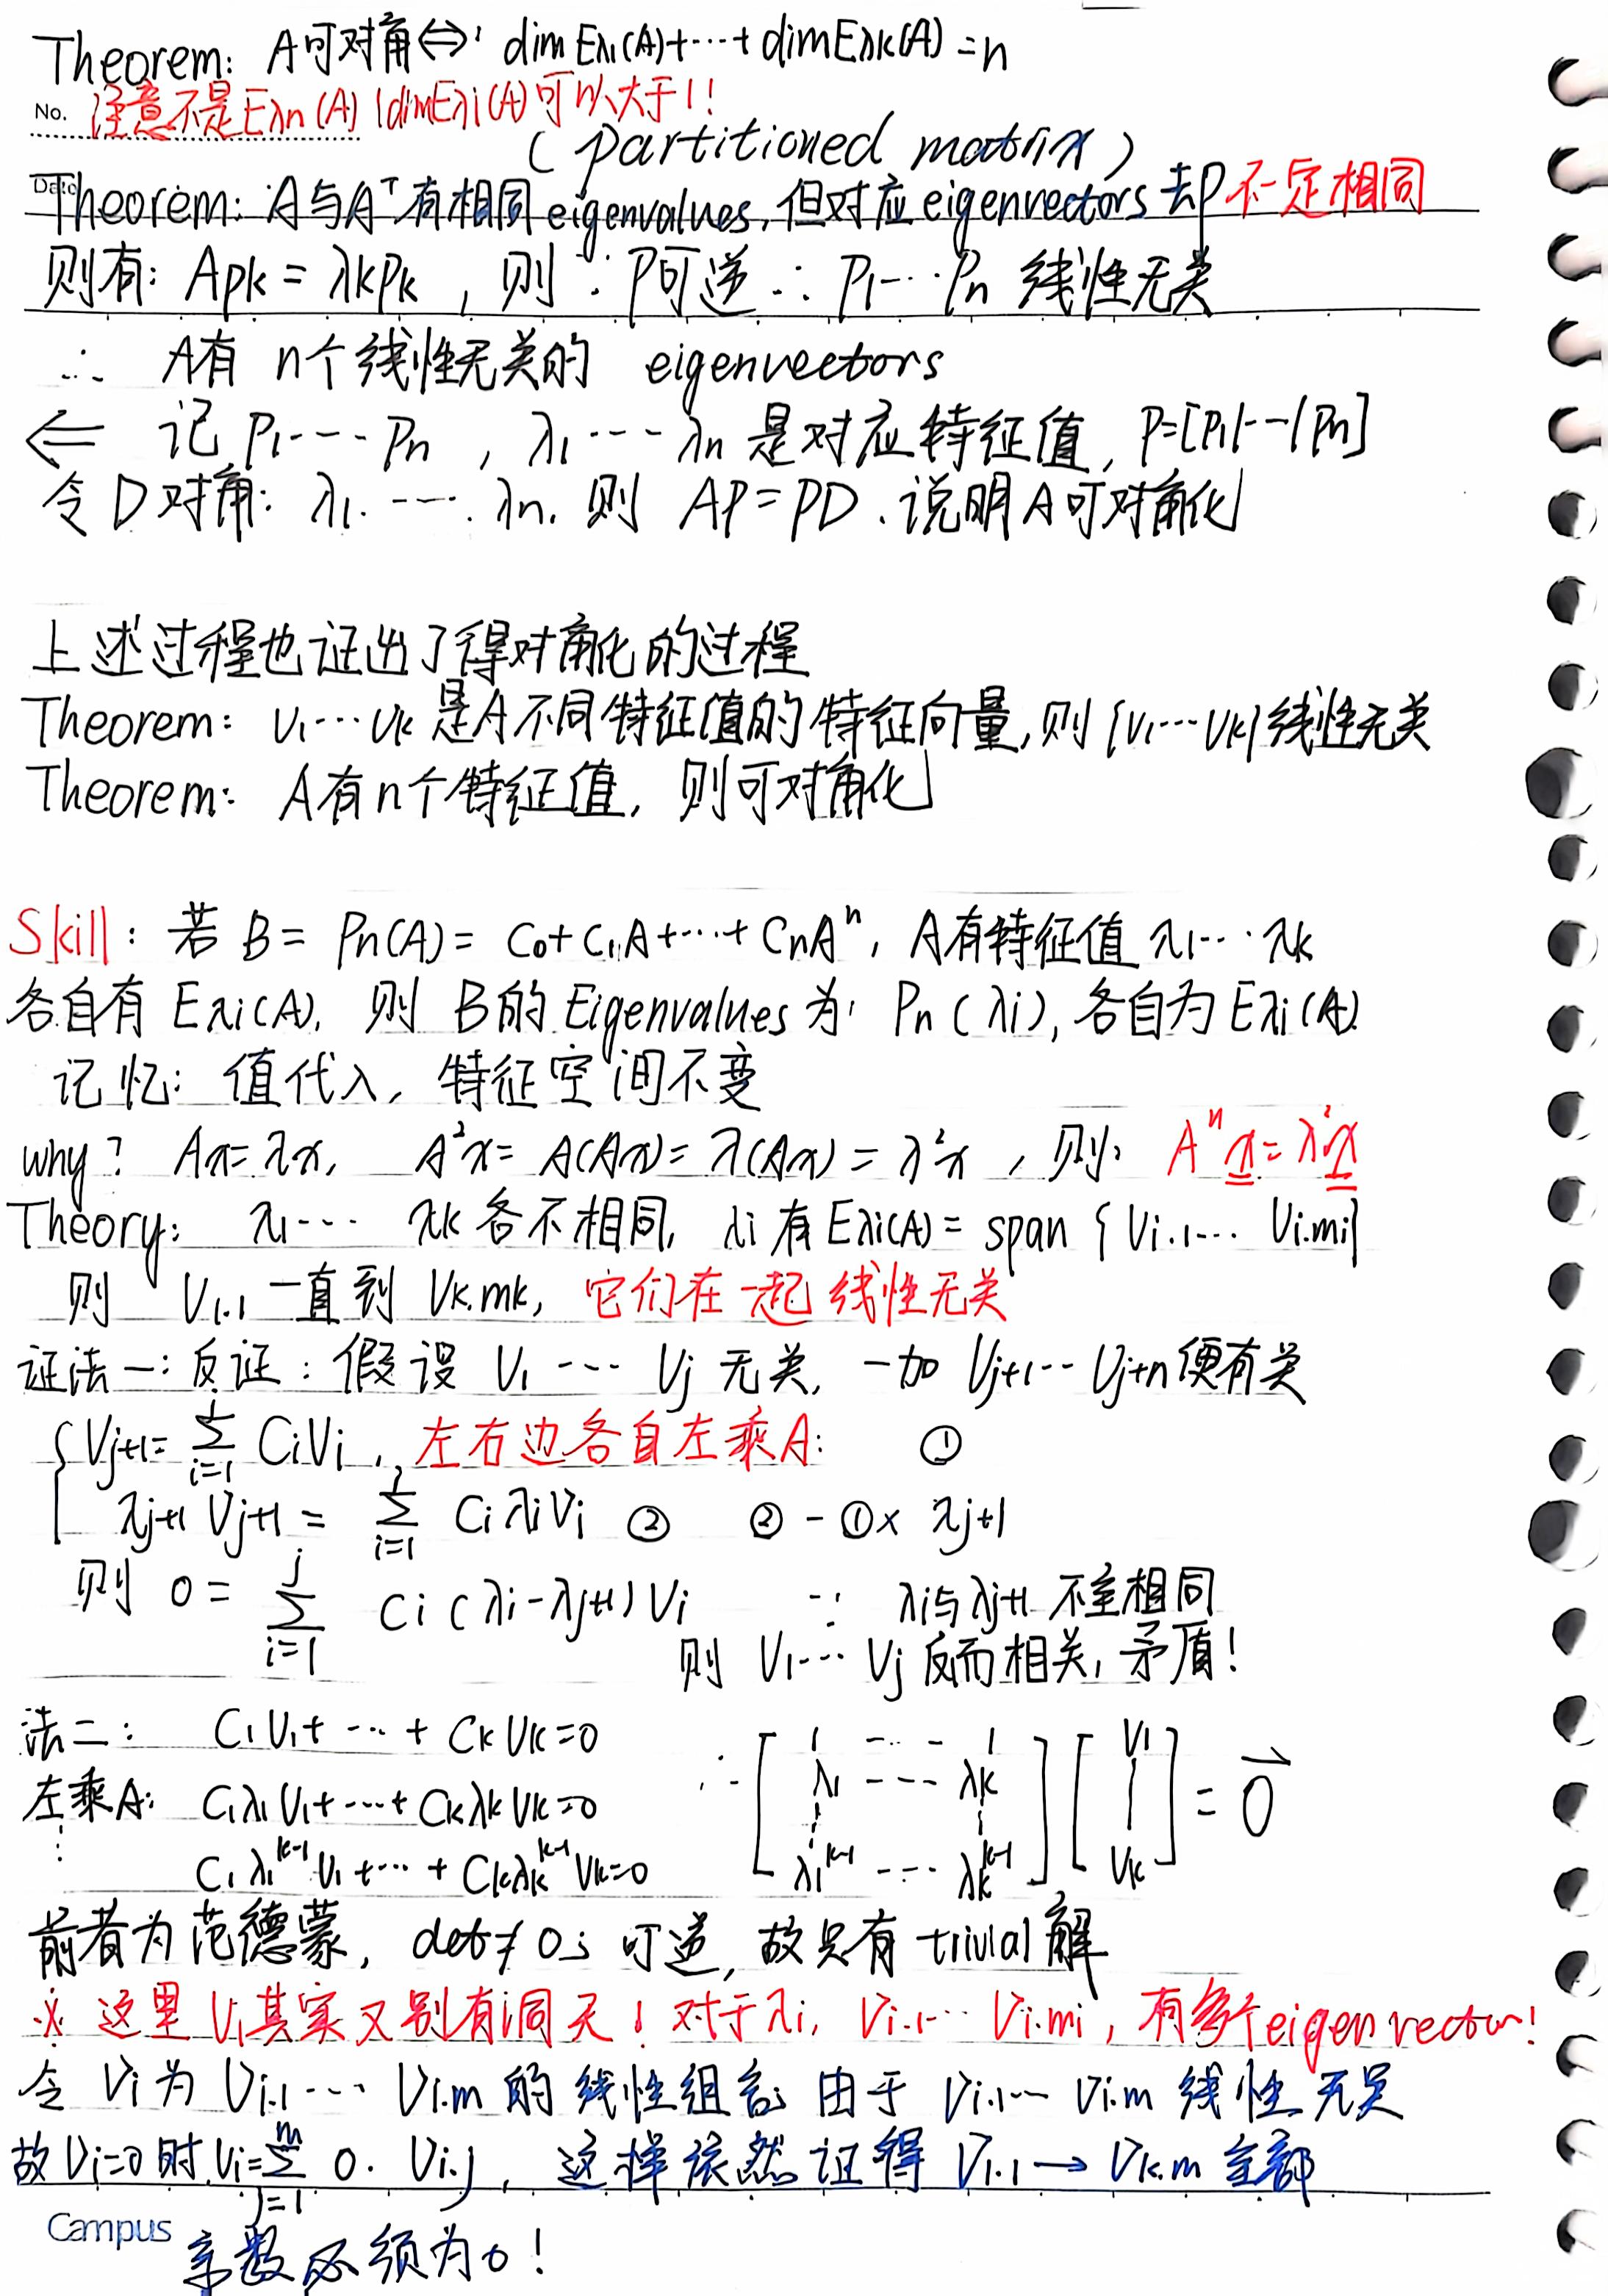 Theorem: A可对角⇔ dimEλ1(A)+…+dimEλk(A)=n
No. 注意不是Eλn(A) (dimEλi(A)可以大于1!!
(partitioned matrix)
Date
Theorem: A与Aᵀ有相同eigenvalues, 但对应eigenvectors 去P 不一定相同
则有: Apk = λkpk , 则 ∵ P可逆 ∴ P1…Pn 线性无关
∴ A有 n个线性无关的 eigenvectors
⇐ 记 P1---Pn , λ1---λn 是对应特征值, P=[P1|--|Pn]
令D对角: λ1.----.λn. 则 AP=PD. 说明A可对角化
上述过程也证出了得对角化的过程
Theorem: V1…Vk是A不同特征值的特征向量,则{V1…Vk}线性无关
Theorem: A有n个特征值, 则可对角化
Skill: 若 B= Pn(A)= C0+C1A+…+CnAⁿ, A有特征值 λ1…λk
各自有 Eλi(A), 则 B的Eigenvalues为: Pn(λi), 各自为Eλi(A).
记忆: 值代入, 特征空间不变
why? Ax=λx, A²x= A(Ax)= λ(Ax) = λ²x , 则: Aⁿx=λ²x
Theory: λ1--- λk 各不相同, λi 有 Eλi(A)= span {Vi.1… Vi.mi}
则 V1.1 一直到 Vk.mk, 它们在一起线性无关
证法一: 反证: 假设 V1 --- Vj 无关, 一加 Vj+1--Vj+n便有关
{ Vj+1= Σ_{i=1}^{j} CiVi , 左右边各自左乘A: ①
λj+1 Vj+1 = Σ_{i=1}^{j} CiλiVi ② ② - ①× λj+1
则 0 = Σ_{i=1}^{j} Ci(λi-λj+1)Vi ∵ λi与λj+1 不全相同
则 V1… Vj 反而相关, 矛盾!
法二: C1V1+ … + CkVk=0
左乘A: C1λ1V1+…+CkλkVk=0
⋮ C1λ1^{k-1}V1+…+Ckλk^{k-1}Vk=0
∴ [1 --- 1 λ1 --- λk ⋮ ⋮ λ1^{k-1} --- λk^{k-1}] [V1 | Vk] = 0⃗
前者为范德蒙, det≠0; 可逆, 故只有 trivial 解
※ 这里Vi其实又别有洞天! 对于λi, Vi.1… Vi.mi, 有多个eigenvector!
令 Vi为 Vi.1… Vi.m 的线性组合; 由于 Vi.1… Vi.m 线性无关
故Vi=0时 Vi=Σ_{j=1}^{m} 0. Vi.j , 这样依然证得 V1.1→Vk.m 全部
Campus
系数必须为0!